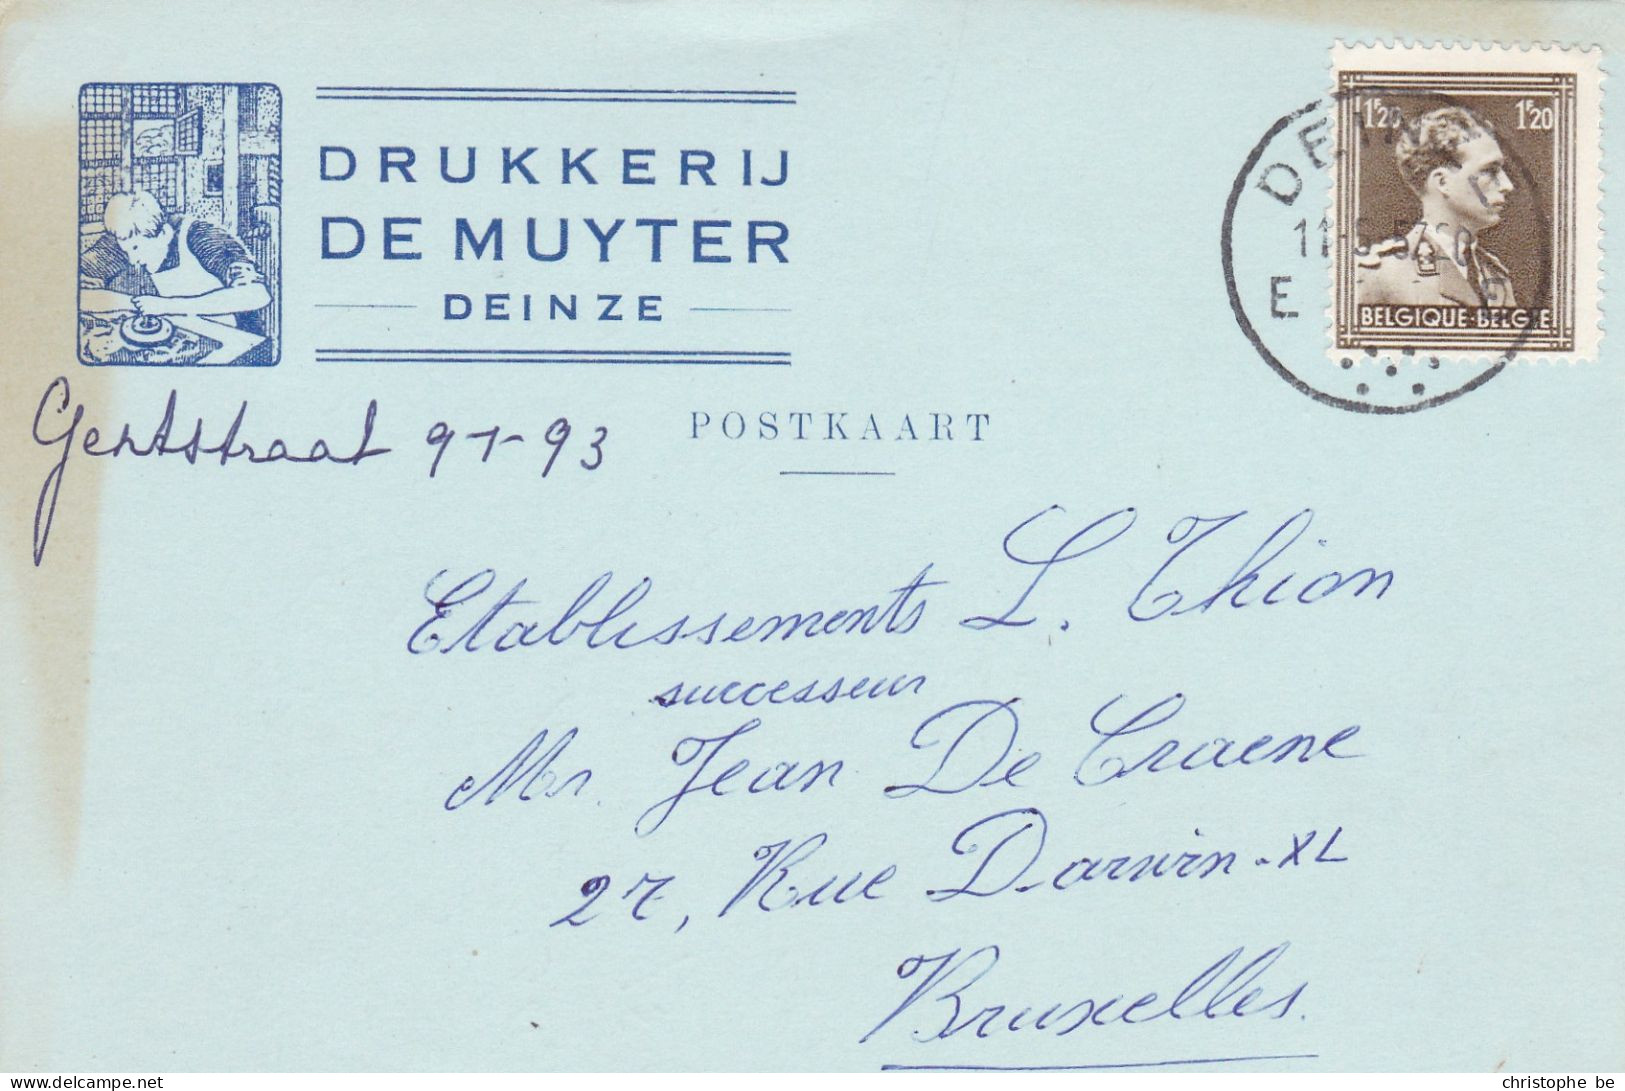 DRUKKERIJ
DE MUYTER
DEINZE
1F20 1F20
BELGIQUE·BELGIE
DEINZE
E
Gentstraat 91-93
POSTKAART
Etablissements L. Thion
successeur
Mr. Jean De Craene
27, Rue Darwin - XL
Bruxelles.
christophe be